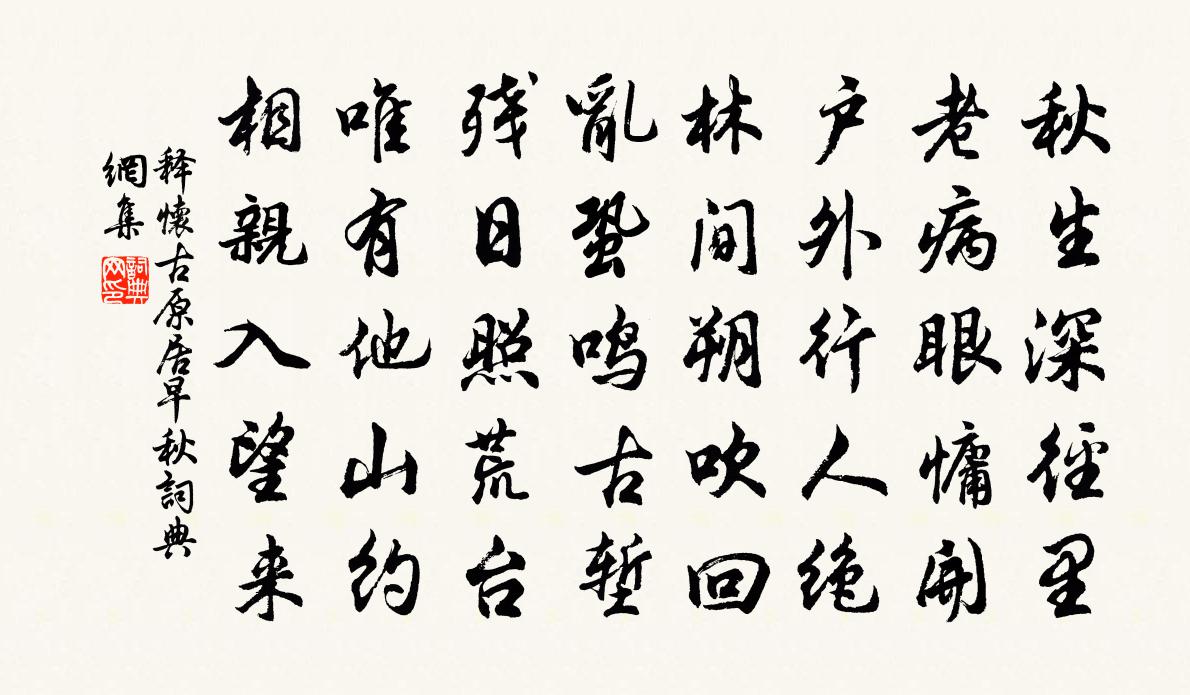 秋生深径里
老病眼慵開
户外行人绝
林間朔吹回
亂蛩鸣古堑
残日照荒台
唯有他山约
相親入望来
释懷古原居早秋詞典
網集
詞典网印